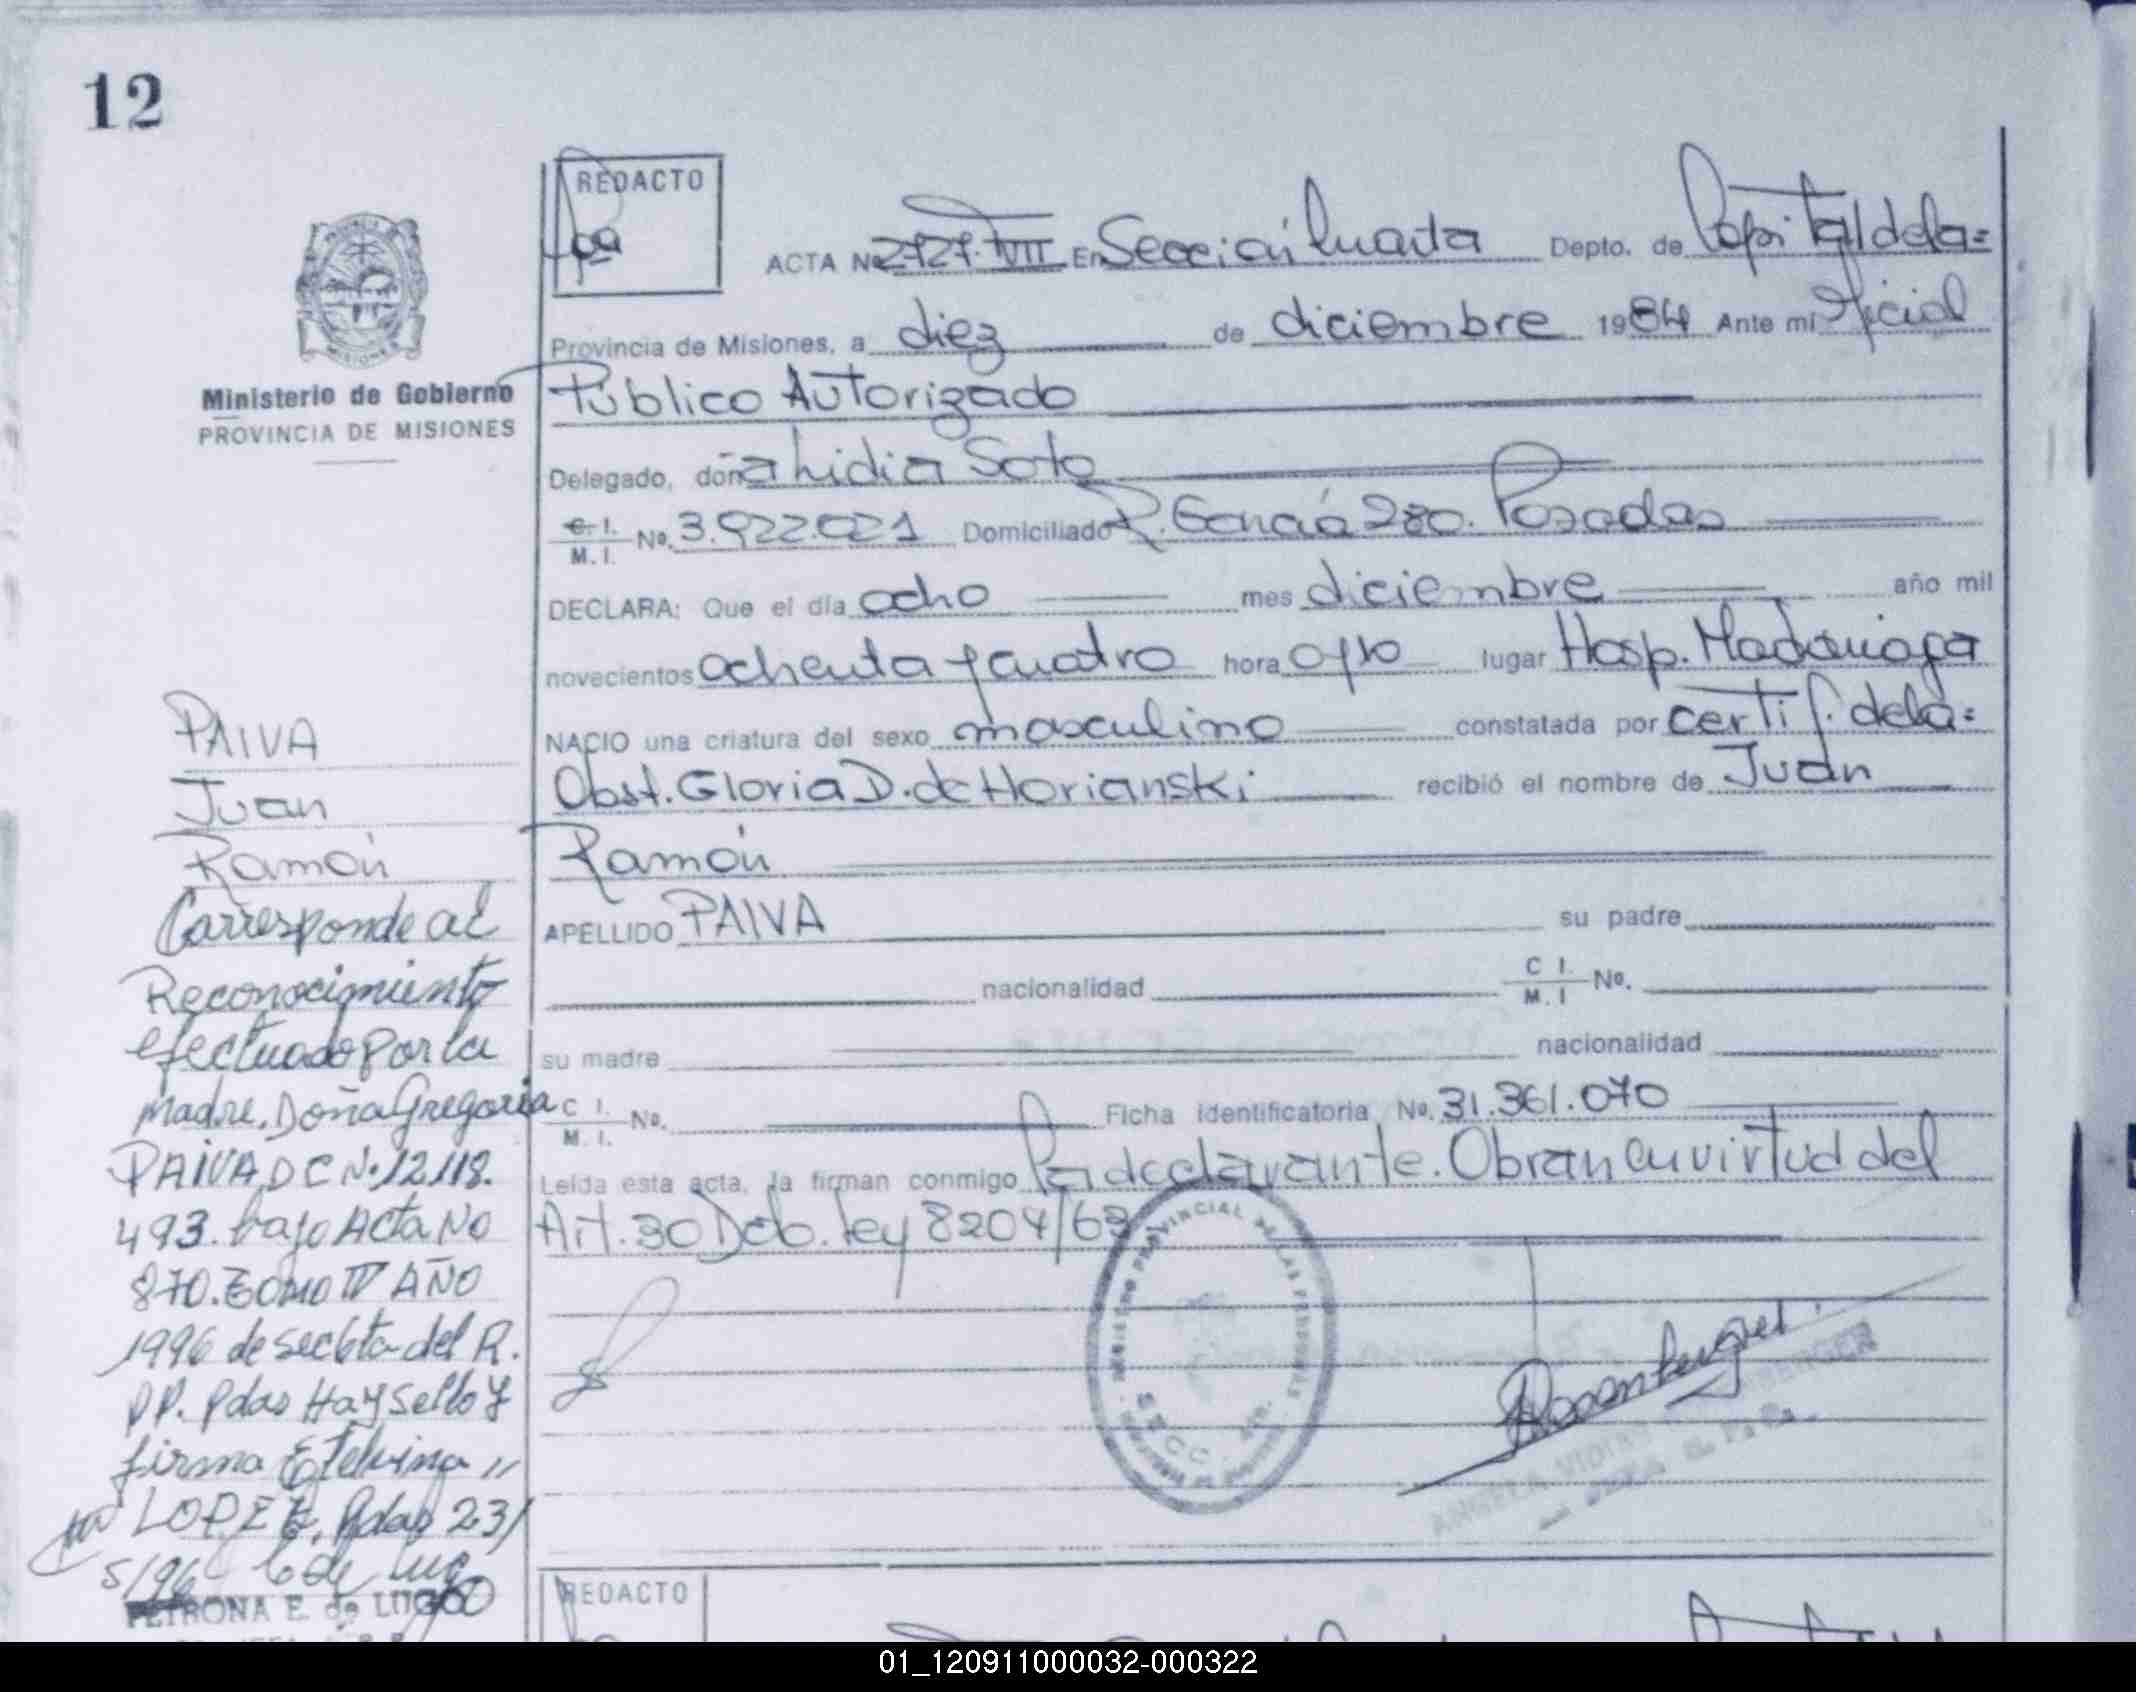 12
REDACTO
ACTA Nº 2727. TVII En Sección Cuarta Depto. de Capital de la=
Provincia de Misiones, a diez de diciembre 1984 Ante mí Oficial
Público Autorizado
Delegado, doña Lidia Soto
C. I. / M. I. Nº. 3.922.021 Domiciliado R. García 280. Posadas
DECLARA: Que el día ocho mes diciembre año mil
novecientos ochenta y cuatro hora 0y10 lugar Hosp. Madariaga
NACIO una criatura del sexo masculino constatada por certif. de la=
Obst. Gloria D. de Horianski recibió el nombre de Juan
Ramón
APELLIDO PAIVA su padre
nacionalidad C I. / M. I Nº.
su madre nacionalidad
C I. / M. I. Nº. Ficha identificatoria Nº. 31.361.070
Leída esta acta, la firman conmigo la declarante. Obran en virtud del
Art. 30 Dcto. Ley 8204/63
Ministerio de Gobierno
PROVINCIA DE MISIONES
PAIVA
Juan
Ramón
Corresponde al
Reconocimiento
efectuado por la
madre, Doña Gregoria
PAIVA DC Nº 12.118.
493. bajo Acta No
870. Tomo IV AÑO
1996 de Sec 6ta del R.
PP. Pdas Hay Sello y
firma Etelvina
LOPEZ, Pdas 23/
5/96
PETRONA E. de LUGO
SECC. 4ta.
REDACTO
01_120911000032-000322